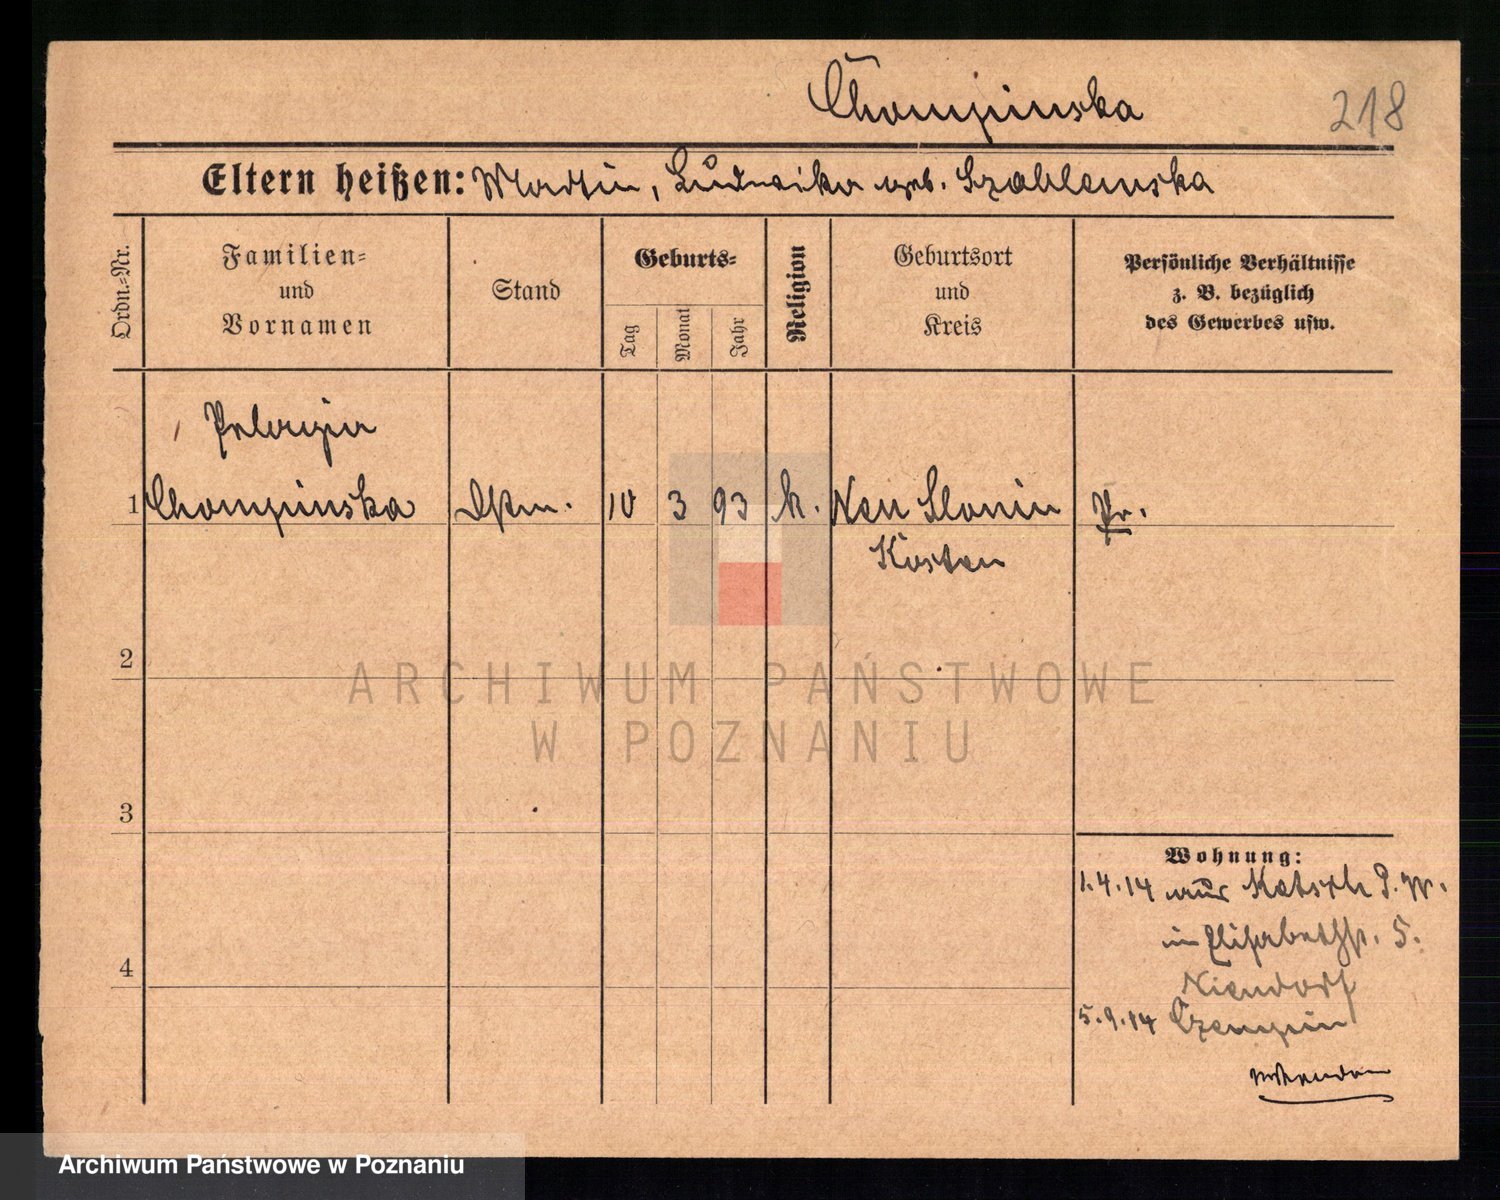 Chompinska
218
Eltern heißen: Martin, Ludwika geb. Szablewska
Ordn.-Nr.
Familien-
und
Vornamen
Stand
Geburts-
Tag
Monat
Jahr
Religion
Geburtsort
und
Kreis
Persönliche Verhältnisse
z. B. bezüglich
des Gewerbes usw.
Pelagia
1 Chompinska Dstm. 10 3 93 k. Neu Slonin Pr.
Kosten
2
3
4
Wohnung:
1.4.14 aus
in Elisabethstr. 5.
Niendorf
5.9.14 Czempin
ARCHIWUM PAŃSTWOWE
W POZNANIU
Archiwum Państwowe w Poznaniu